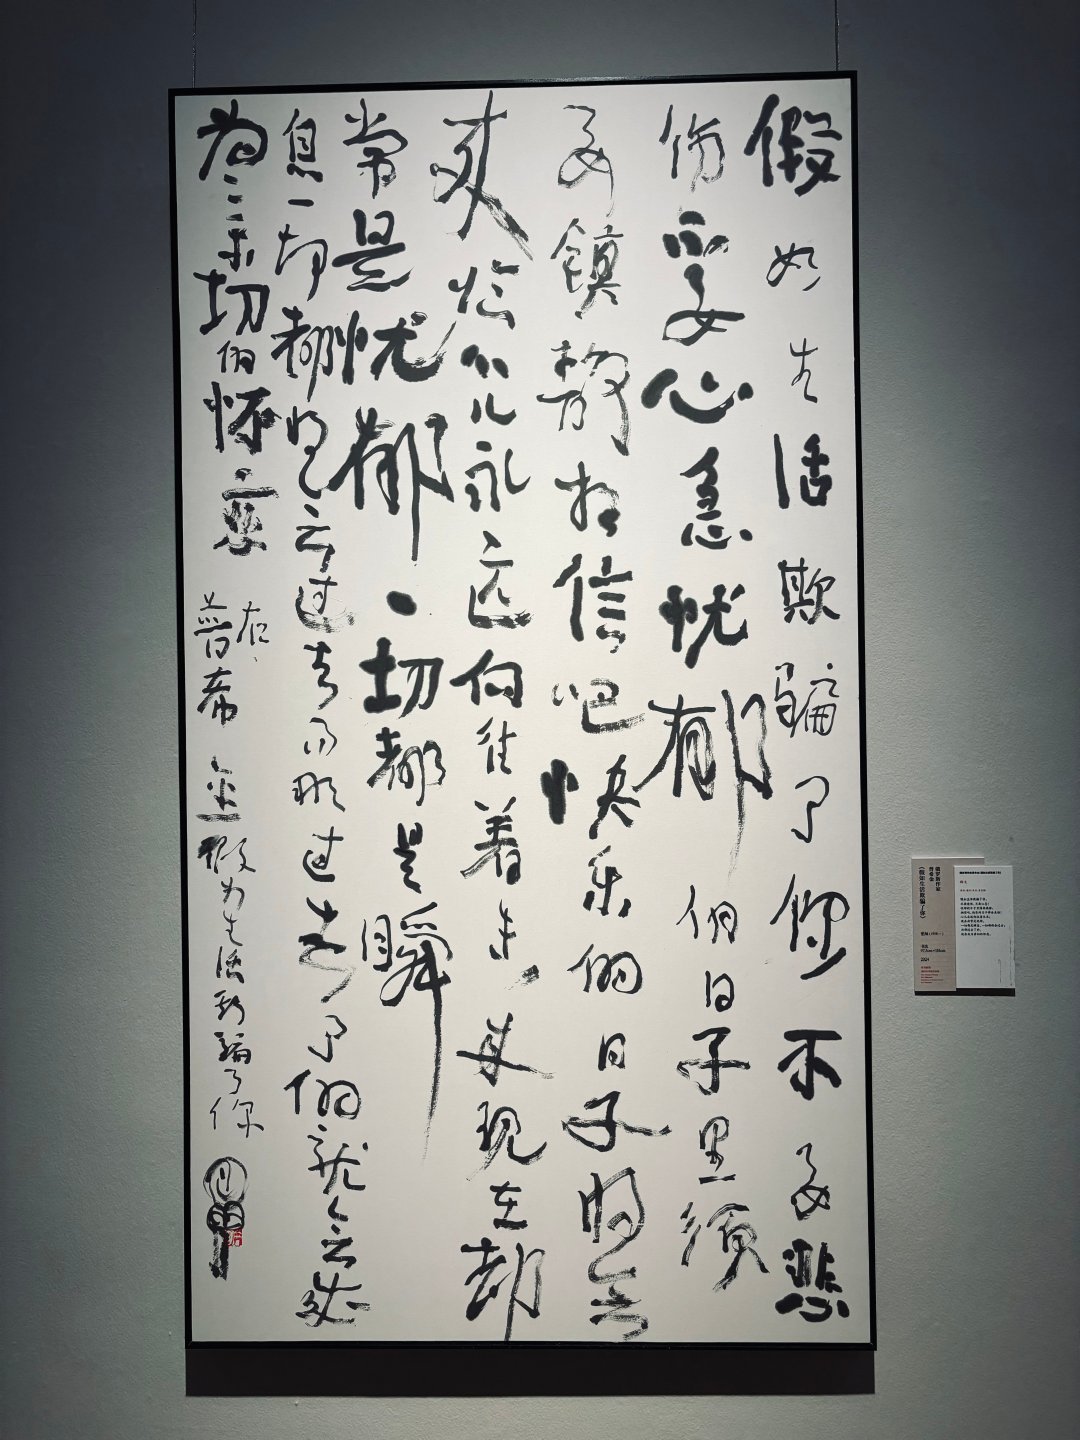 假如生活欺骗了你不要悲
伤不要心急忧郁的日子里须
要镇静相信吧快乐的日子将会
来临心儿永远向往着未来现在却
常是忧郁一切都是瞬
息一切都将会过去而那过去了的就会成
为亲切的怀恋
右普希金假如生活欺骗了你
俄罗斯作家
普希金
《假如生活欺骗了你》
2024